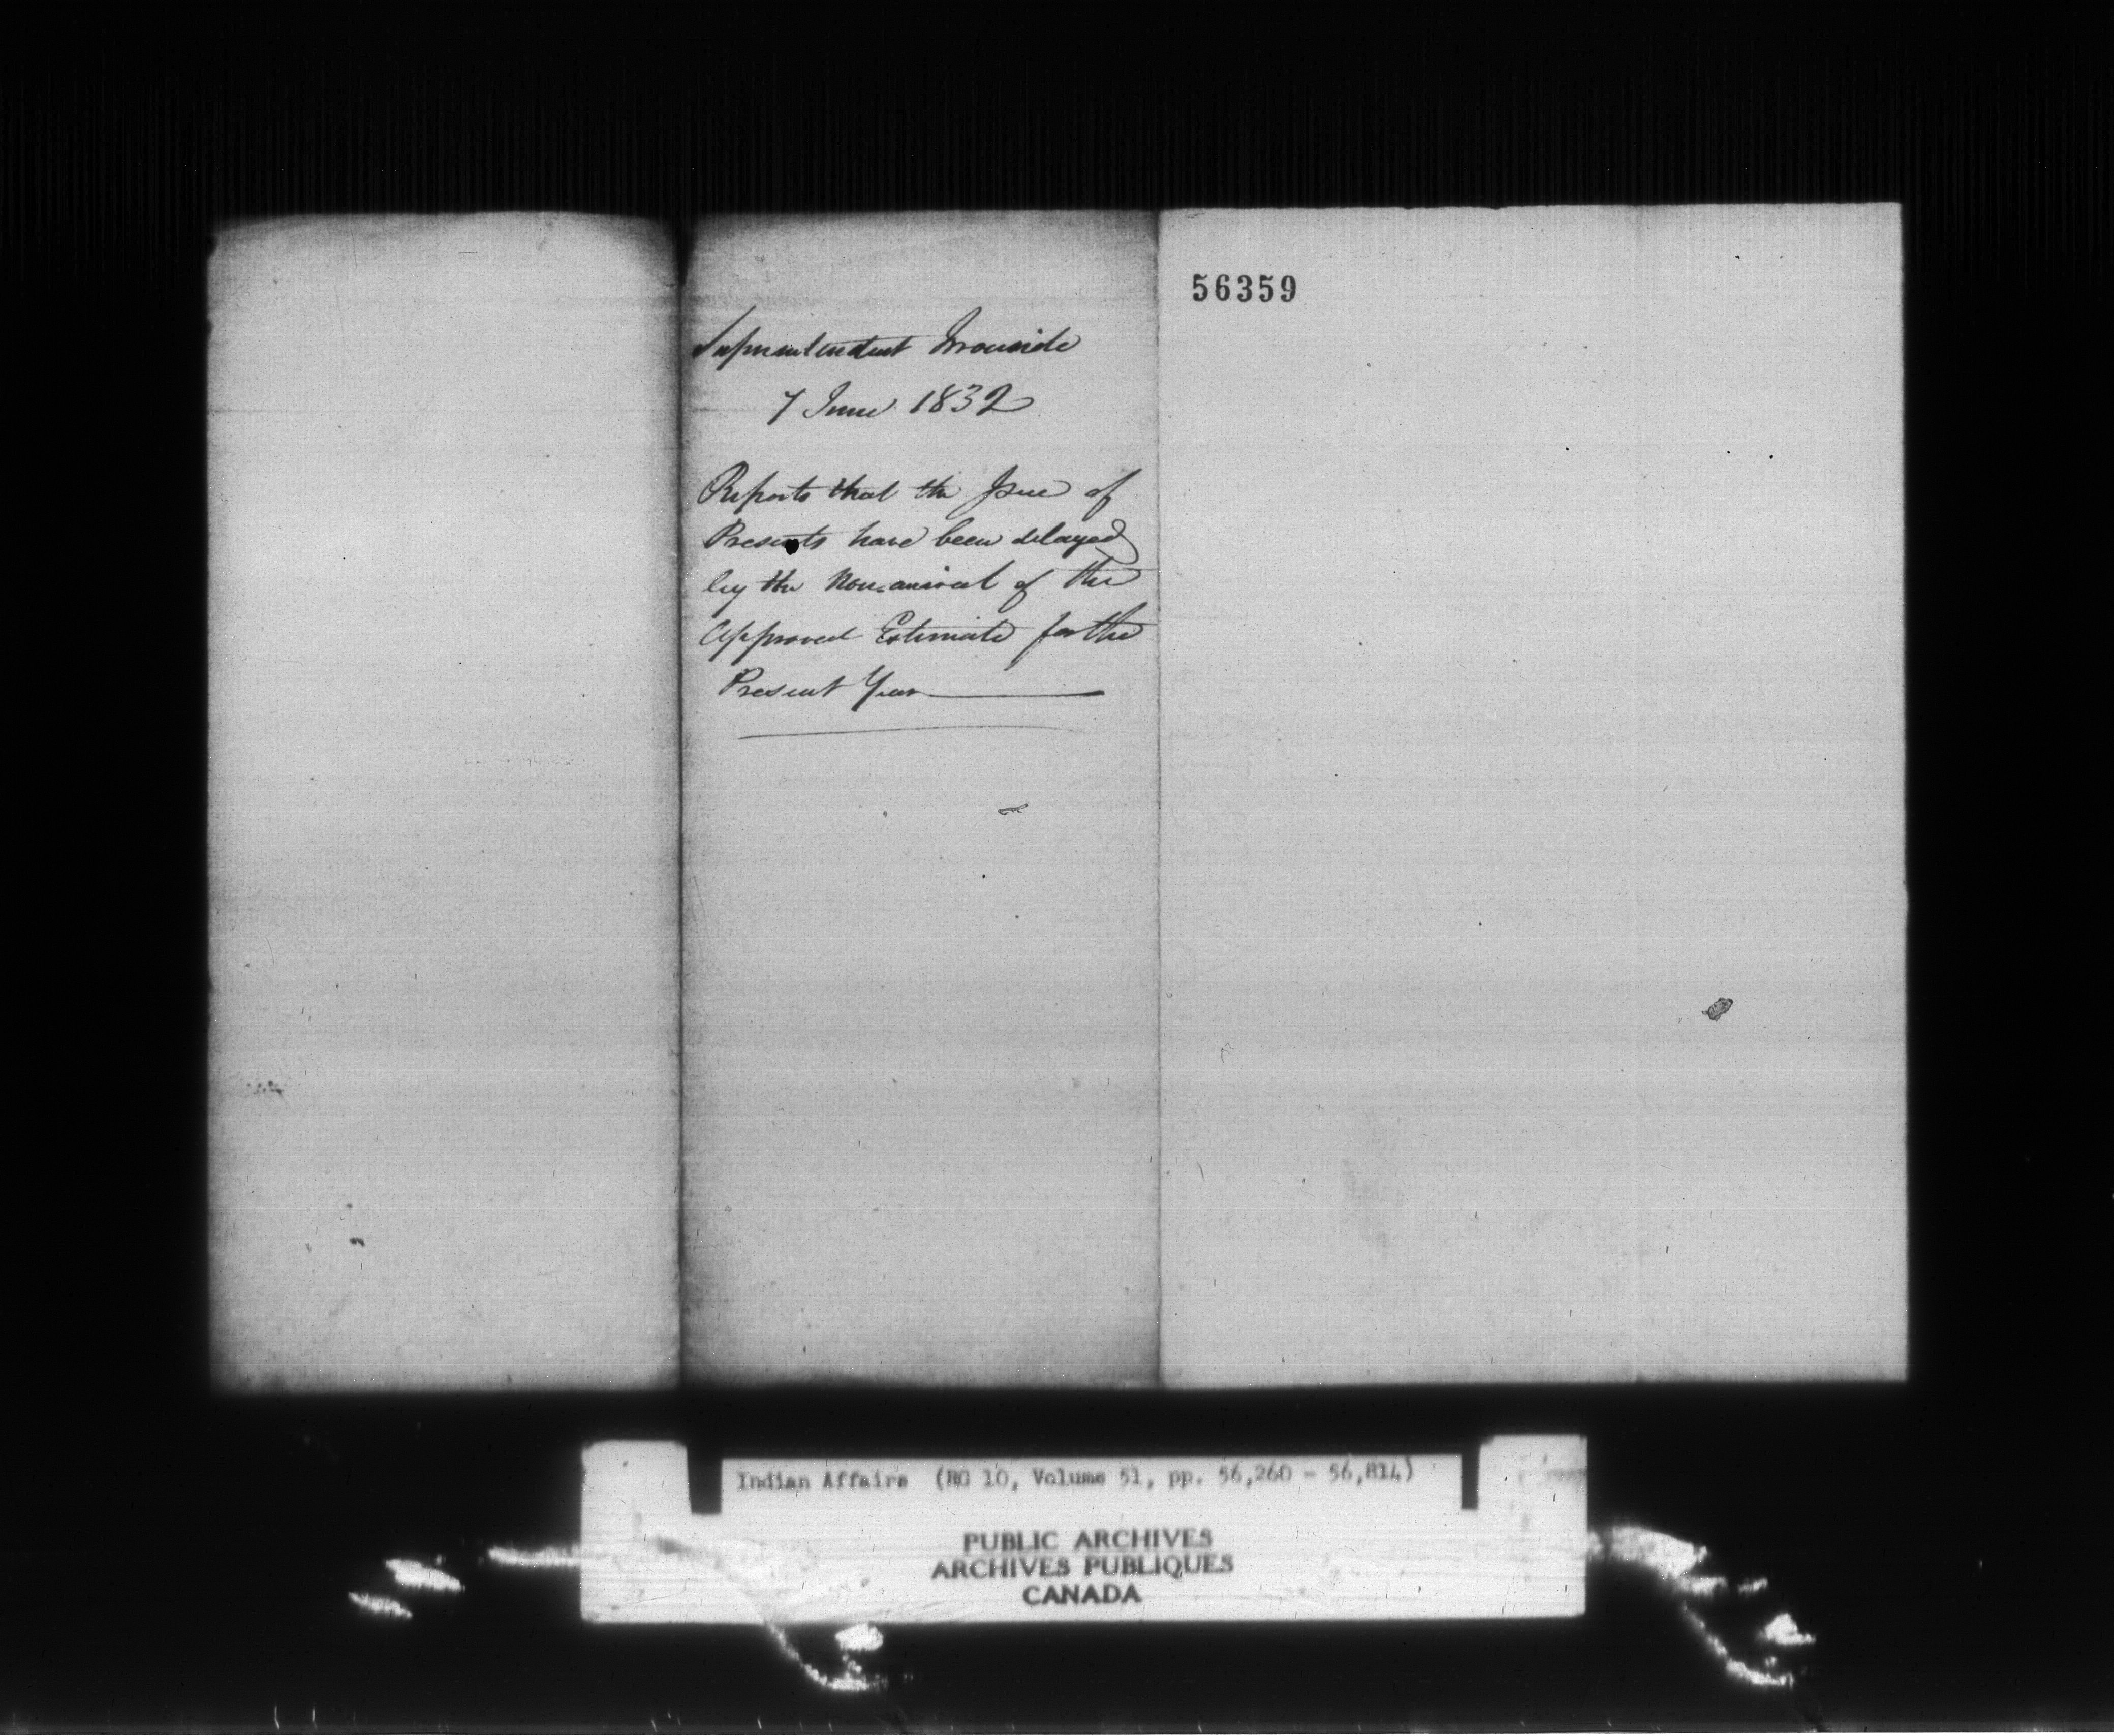 Superintendent Ironside
7 June 1832
Reports that the Issue of
Presents have been delayed
by the Non-arrival of the
Approved Estimate for the
Present Year
56359
Indian Affairs (RG 10, Volume 51, pp. 56,260 - 56,814)
PUBLIC ARCHIVES
ARCHIVES PUBLIQUES
CANADA